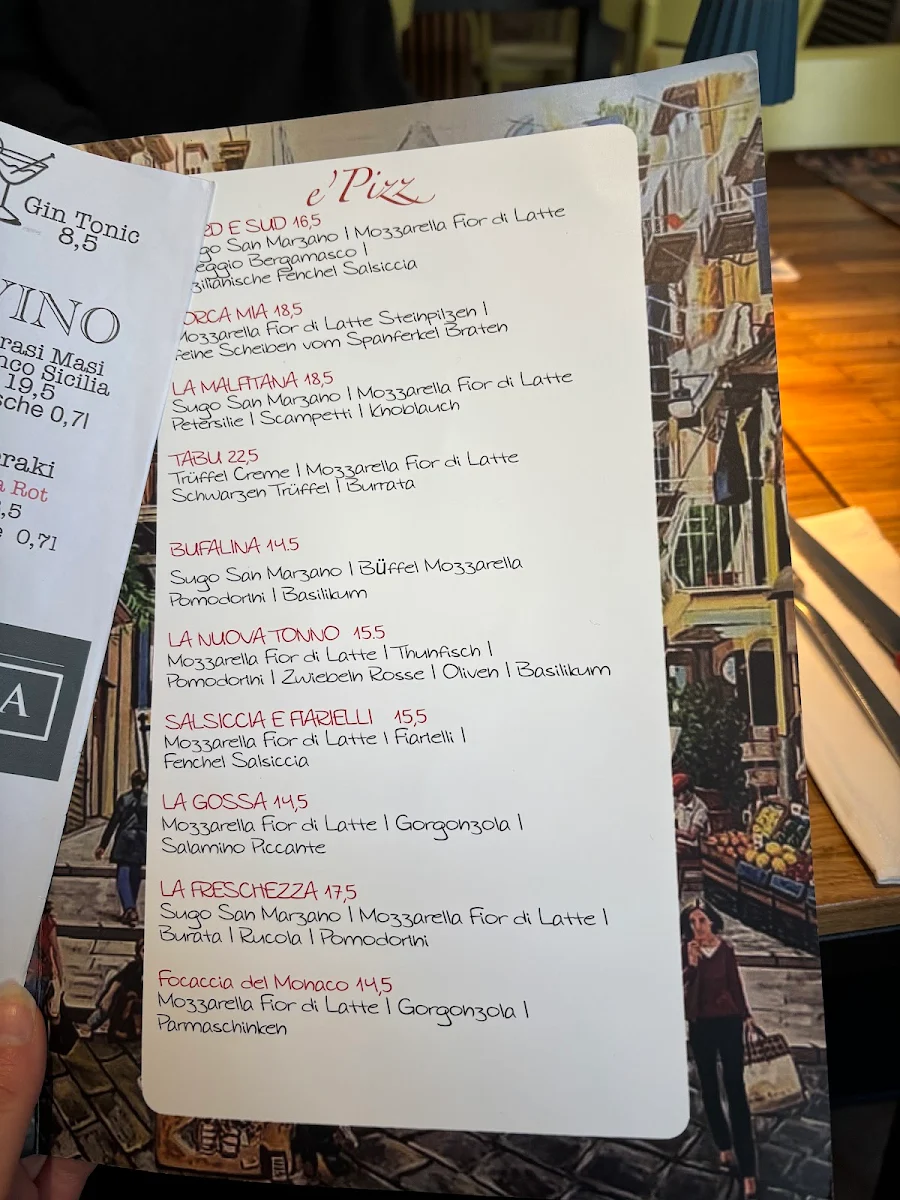 Gin Tonic
8,5
VINO
Masi
Sicilia
19,5
0,7l
Rot
0,7l
A
e' Pizz
E SUD 16,5
San Marzano | Mozzarella Fior di Latte
Bergamasco |
Fenchel Salsiccia
MIA 18,5
Mozzarella Fior di Latte Steinpilzen |
feine Scheiben vom Spanferkel Braten
LA MALFITANA 18,5
Sugo San Marzano | Mozzarella Fior di Latte
Petersilie | Scampetti | Knoblauch
TABU 22,5
Trüffel Creme | Mozzarella Fior di Latte
Schwarzen Trüffel | Burrata
BUFALINA 14.5
Sugo San Marzano | Büffel Mozzarella
Pomodorini | Basilikum
LA NUOVA TONNO 15.5
Mozzarella Fior di Latte | Thunfisch |
Pomodorini | Zwiebeln Rosse | Oliven | Basilikum
SALSICCIA E FIARIELLI 15,5
Mozzarella Fior di Latte | Fiarielli |
Fenchel Salsiccia
LA GOSSA 14,5
Mozzarella Fior di Latte | Gorgonzola |
Salamino Piccante
LA FRESCHEZZA 17,5
Sugo San Marzano | Mozzarella Fior di Latte |
Burata | Rucola | Pomodorini
Focaccia del Monaco 14,5
Mozzarella Fior di Latte | Gorgonzola |
Parmaschinken